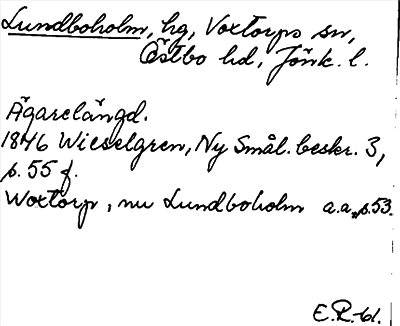 Lundboholm, hg, Voxtorps sn,
Östbo hd, Jönk. l.
Ägarelängd.
1846 Wieselgren, Ny Smål. beskr. 3,
s. 55 f.
Woxtorp, nu Lundboholm a.a., s. 53.
E.R.-61.